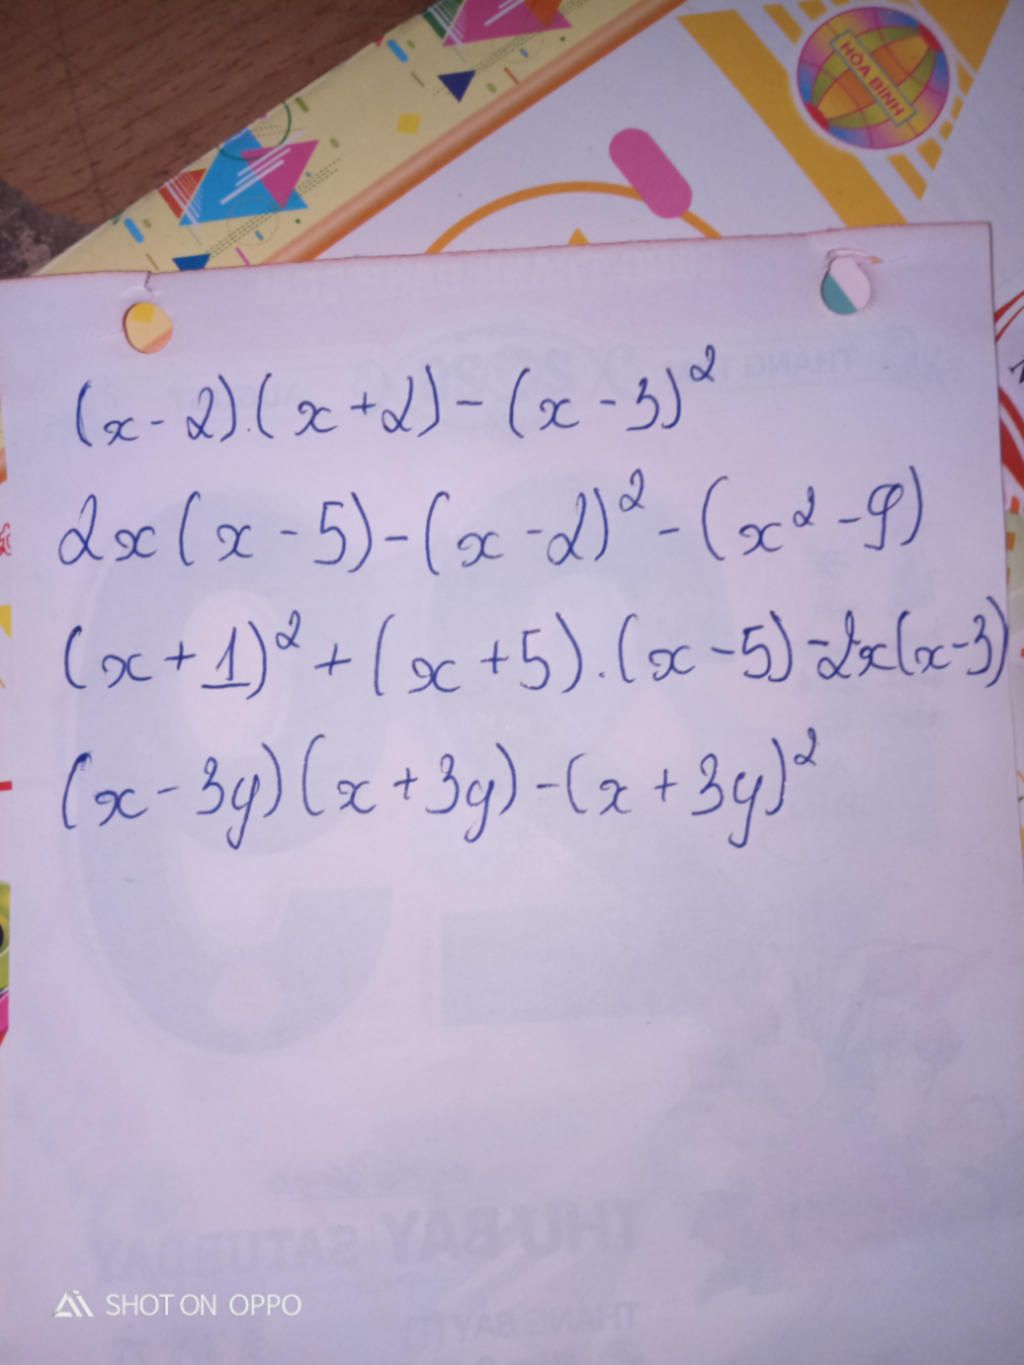 HÒA BÌNH
(x - 2).(x + 2) - (x - 3)²
2x(x - 5) - (x - 2)² - (x² - 9)
(x + 1)² + (x + 5).(x - 5) - 2x(x - 3)
(x - 3y)(x + 3y) - (x + 3y)²
THU BAY SATURDAY
THÁNG BẢY (T)
SHOT ON OPPO